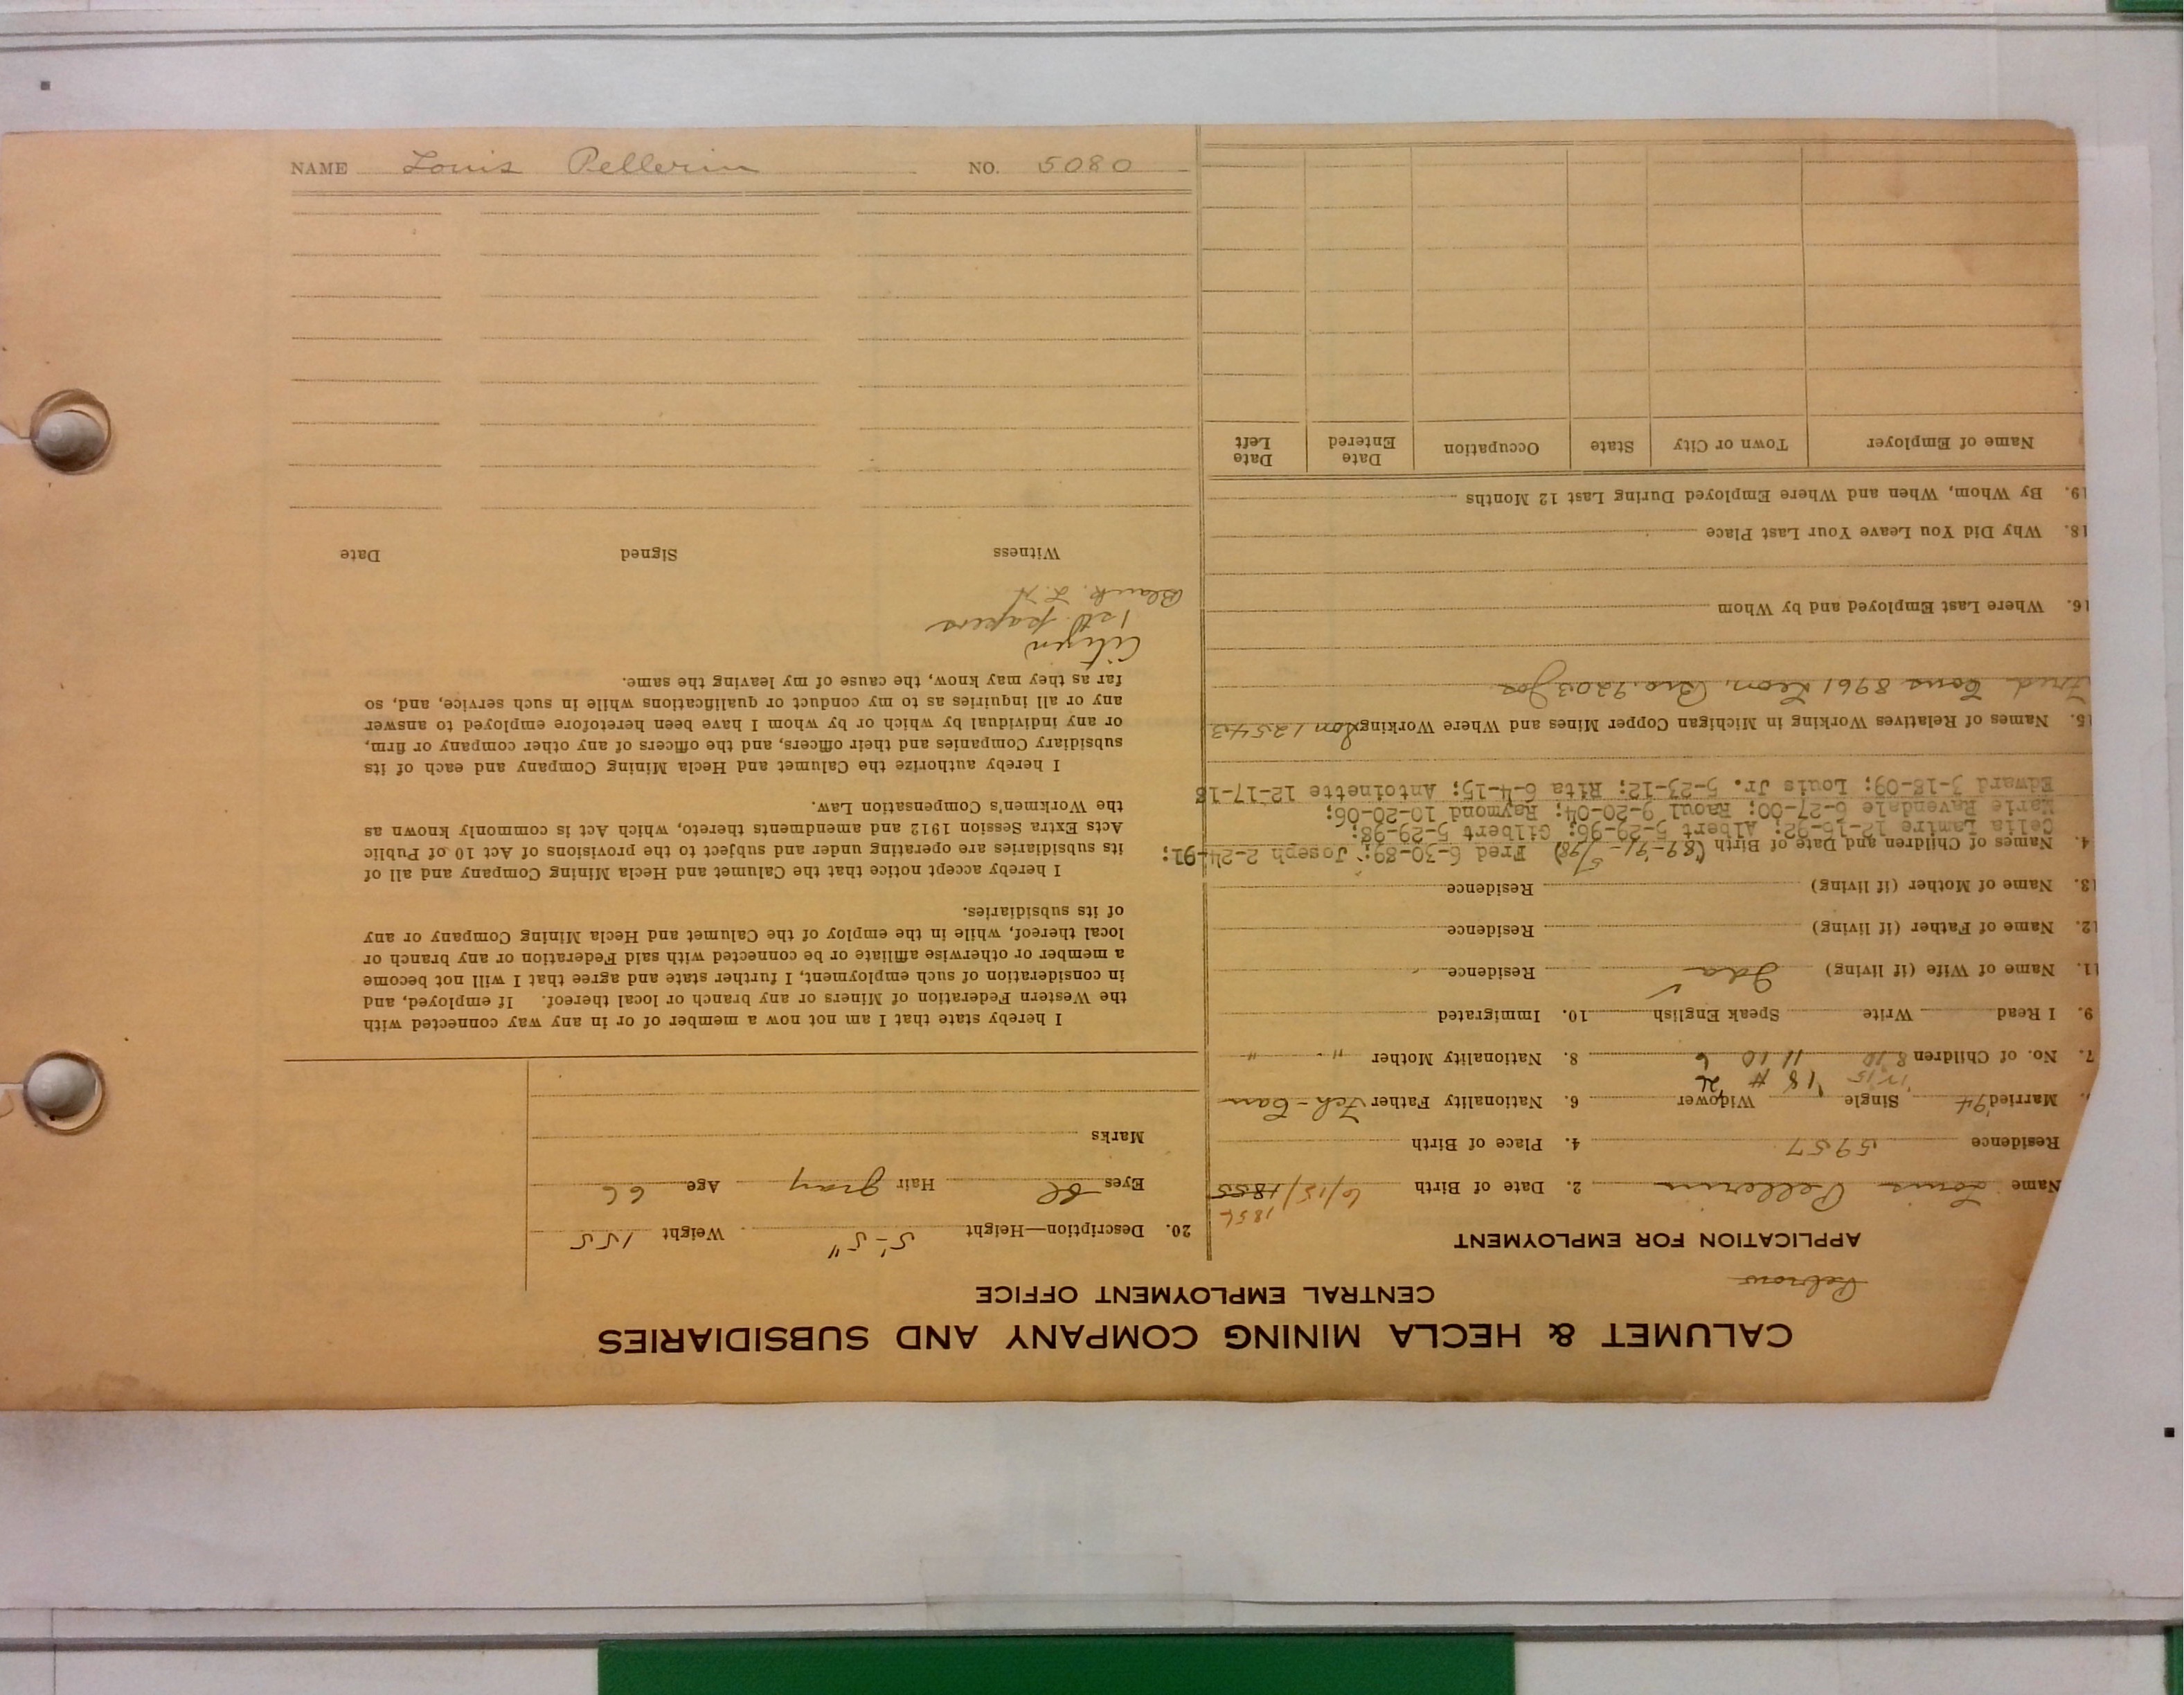 CALUMET & HECLA MINING COMPANY AND SUBSIDIARIES
CENTRAL EMPLOYMENT OFFICE
APPLICATION FOR EMPLOYMENT
Name Louis Pellerin 2. Date of Birth 6/15/1855 1856
Residence 5957 4. Place of Birth
Married '94 Single Widower 6. Nationality Father Fch-Can
7. No. of Children 8 10 11 10 8. Nationality Mother " "
9. I Read Write Speak English 10. Immigrated
11. Name of Wife (if living) Ida Residence
12. Name of Father (if living) Residence
13. Name of Mother (if living) Residence
4. Names of Children and Date of Birth (89-91-5/98) Fred 6-30-89; Joseph 2-24-91;
Celia Lamire 12-16-92; Albert 5-29-96; Gilbert 5-29-98;
Marie Ravendale 6-27-00; Raoul 9-20-04; Raymond 10-20-06;
Edward 3-18-09; Louis Jr. 5-23-12; Rita 6-4-15; Antoinette 12-17-18
15. Names of Relatives Working in Michigan Copper Mines and Where Working Son 12543
Fred Cous 8961 Leon, Bro. 9203 Jos
16. Where Last Employed and by Whom
18. Why Did You Leave Your Last Place
19. By Whom, When and Where Employed During Last 12 Months
Name of Employer Town or City State Occupation Date Entered Date Left
20. Description—Height 5'-5" Weight 155
Eyes Bl Hair gray Age 66
Marks
I hereby state that I am not now a member of or in any way connected with
the Western Federation of Miners or any branch or local thereof. If employed, and
in consideration of such employment, I further state and agree that I will not become
a member or otherwise affiliate or be connected with said Federation or any branch or
local thereof, while in the employ of the Calumet and Hecla Mining Company or any
of its subsidiaries.
I hereby accept notice that the Calumet and Hecla Mining Company and all of
its subsidiaries are operating under and subject to the provisions of Act 10 of Public
Acts Extra Session 1912 and amendments thereto, which Act is commonly known as
the Workmen's Compensation Law.
I hereby authorize the Calumet and Hecla Mining Company and each of its
subsidiary Companies and their officers, and the officers of any other company or firm,
or any individual by which or by whom I have been heretofore employed to answer
any or all inquiries as to my conduct or qualifications while in such service, and, so
far as they may know, the cause of my leaving the same.
Citizen
1st papers
Witness Signed Date
NAME Louis Pellerin NO. 5080